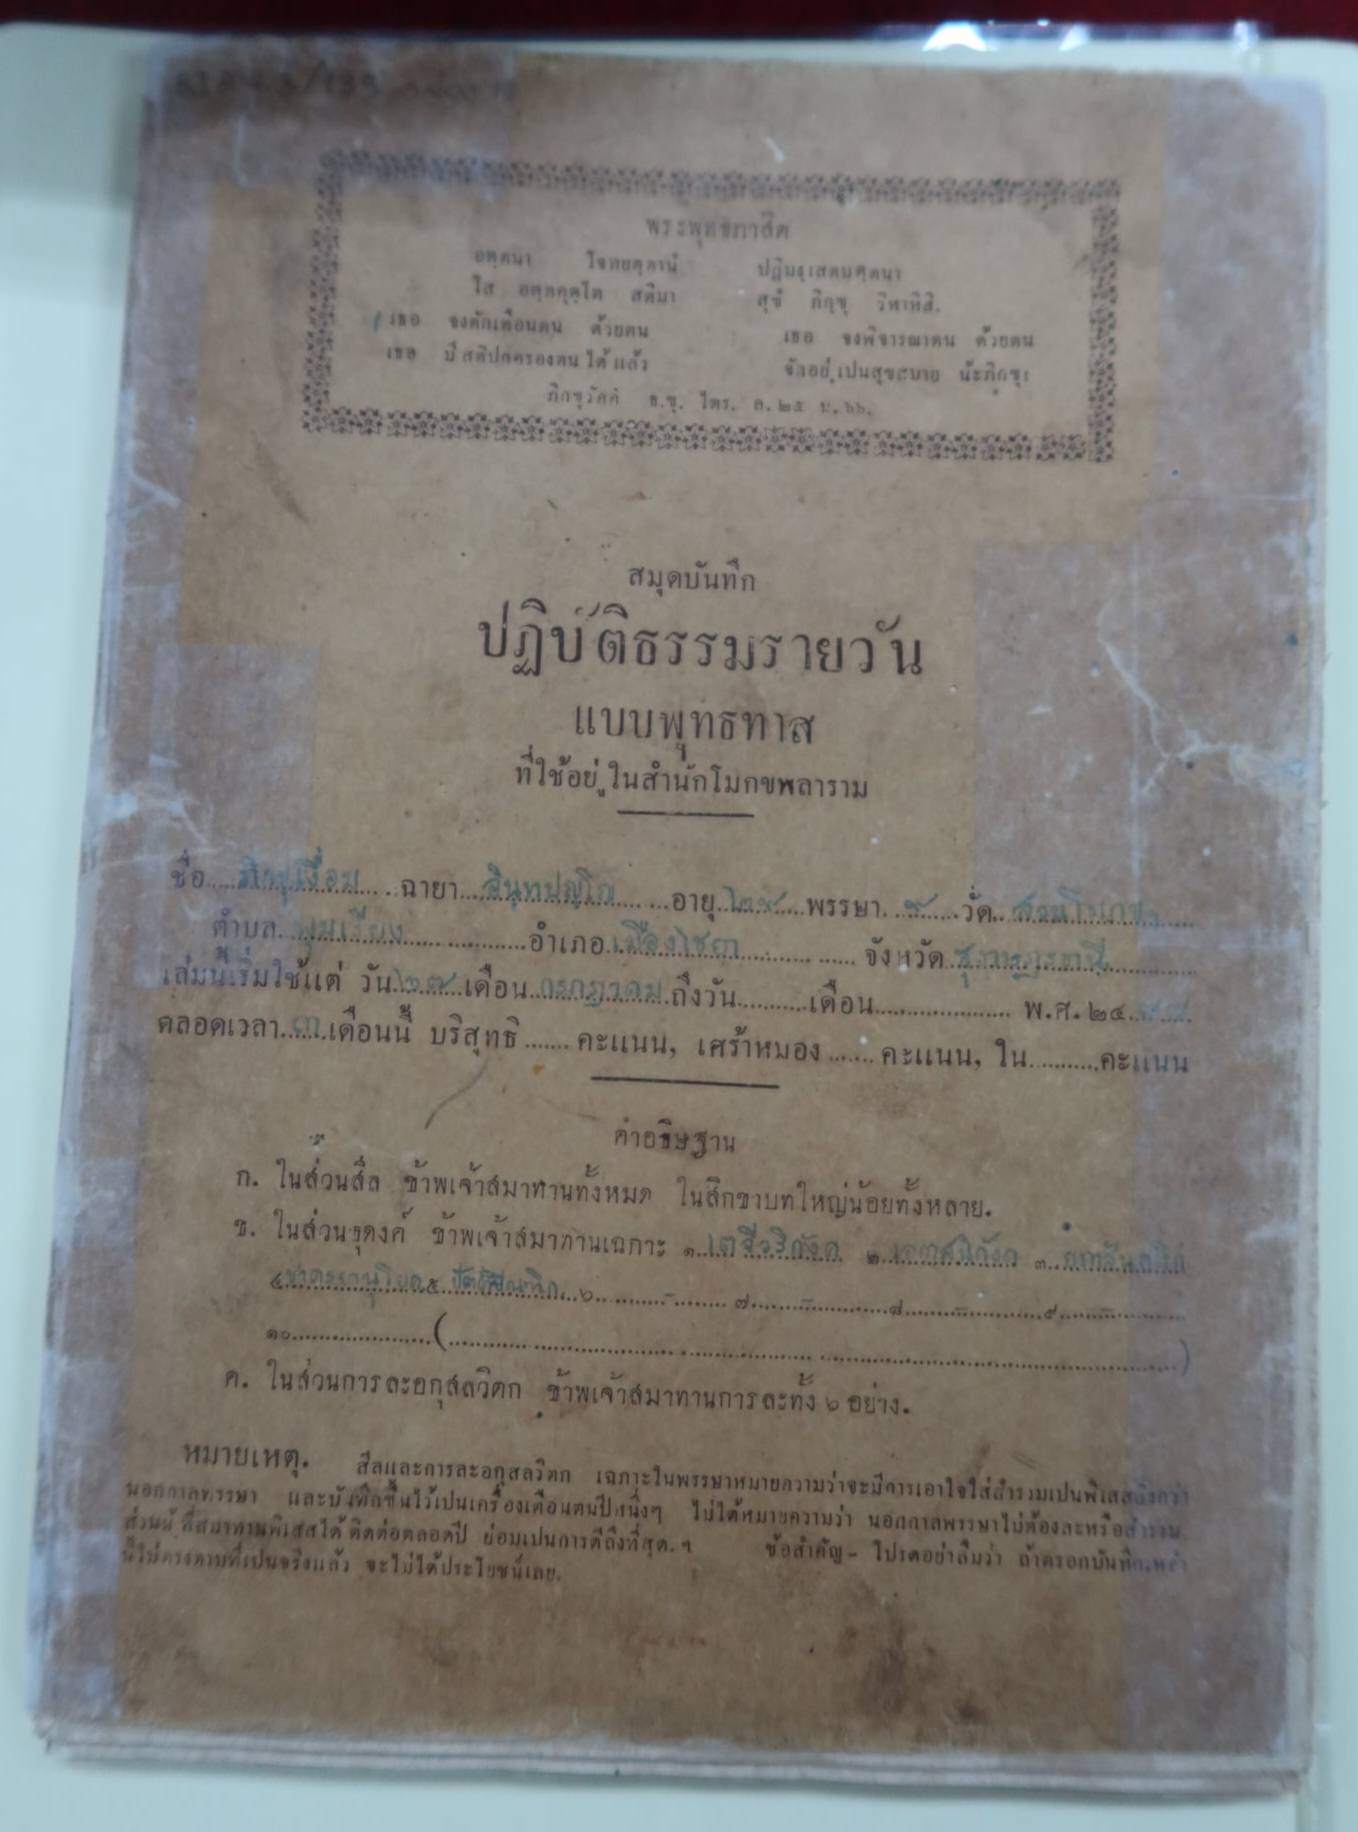 พระพุทธภาสิต
อตฺตนา โจทยตฺตานํ ปฏิมํเสตมตฺตนา
โส อตฺตคุตฺโต สติมา สุขํ ภิกฺขุ วิหาหิสิ.
เธอ จงตักเตือนตน ด้วยตน เธอ จงพิจารณาตน ด้วยตน
เธอ มีสติปกครองตนได้แล้ว จักอยู่เปนสุขสบาย น๊ะภิกขุ!
ภิกขุวัคค์ ธ.ขุ. ไตร. ล.๒๕ น.๖๖.
สมุดบันทึก
ปฏิบัติธรรมรายวัน
แบบพุทธทาส
ที่ใช้อยู่ในสำนักโมกขพลาราม
ชื่อ ภิกขุเงื่อม ฉายา อินฺทปญฺโญ อายุ ๒๙ พรรษา ๙ วัด สวนโมกข์
ตำบล พุมเรียง อำเภอ เมืองไชยา จังหวัด สุราษฎร์ธานี
เล่มนี้เริ่มใช้แต่ วัน ๒๗ เดือน กรกฎาคม ถึงวัน เดือน พ.ศ. ๒๔๗๗
ตลอดเวลา ๓ เดือนนี้ บริสุทธิ คะแนน, เศร้าหมอง คะแนน, ใน คะแนน
คำอธิษฐาน
ก. ในส่วนสีล ข้าพเจ้าสมาทานทั้งหมด ในสิกขาบทใหญ่น้อยทั้งหลาย.
ข. ในส่วนธุดงค์ ข้าพเจ้าสมาทานเฉภาะ ๑ เตจีวริกังค ๒ เอกาสนิกังค ๓ ยถาสันถติก
๔ ๕ ๖ ๗ ๘ ๙
๑๐ ( )
ค. ในส่วนการละอกุสลวิตก ข้าพเจ้าสมาทานการละทั้ง ๖ อย่าง.
หมายเหตุ. สีลและการละอกุสลวิตก เฉภาะในพรรษาหมายความว่าจะมีการเอาใจใส่สำรวมเปนพิเสสยิ่งกว่า
นอกกาลพรรษา และบันทึกขึ้นไว้เปนเครื่องเตือนตนปีหนึ่งๆ ไม่ได้หมายความว่า นอกกาลพรรษาไม่ต้องละหรือสำรวม.
ส่วนผู้ที่สมาทานพิเสสได้ ติดต่อตลอดปี ย่อมเปนการดีถึงที่สุด. ฯ ข้อสำคัญ- โปรดอย่าลืมว่า ถ้าครอกบันทึกเหล่า
นี้ไม่ตรงตามที่เปนจริงแล้ว จะไม่ได้ประโยชน์เลย.